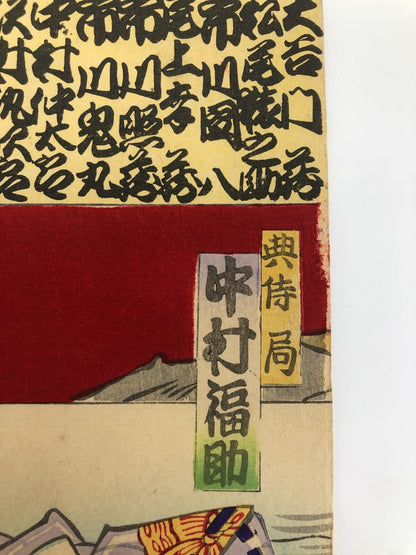 大谷門蔵
松尾猪之助
市川團八
尾上幸蔵
市川照蔵
市川鬼丸
中村伝太呂
典侍局
中村福助